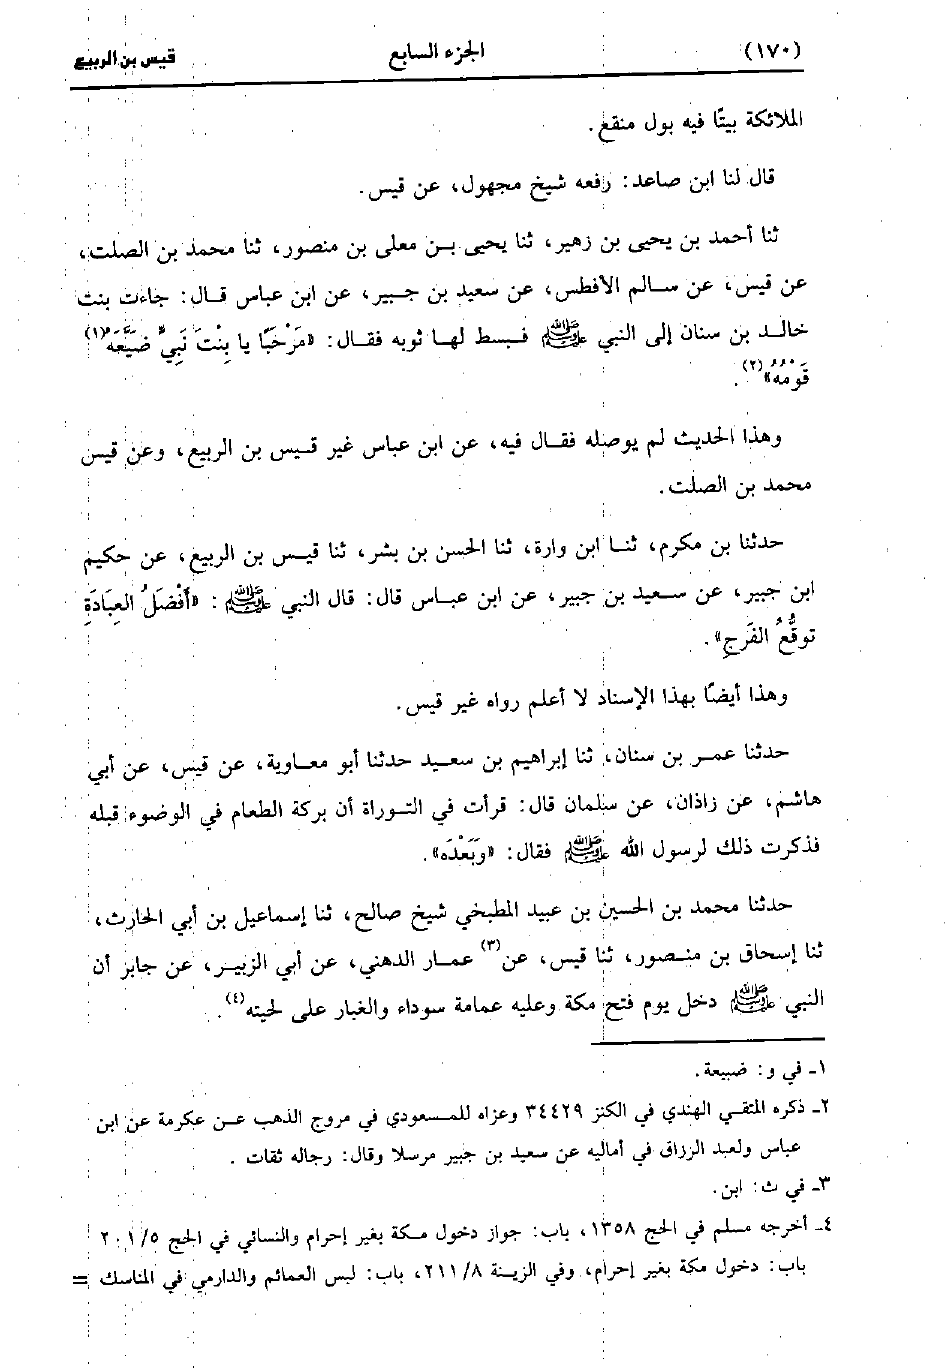 (١٧٠) الجزء السابع قيس بن الربيع
الملائكة بيتًا فيه بول منقع.
قال لنا ابن صاعد: رفعه شيخ مجهول، عن قيس.
ثنا أحمد بن يحيى بن زهير، ثنا يحيى بـن معلى بن منصور، ثنا محمد بن الصلت،
عن قيس، عن سـالم الأفطس، عن سعيد بن جبير، عن ابن عباس قـال: جاءت بنت
خالـد بن سنان إلى النبي ﷺ فـبسط لهـا ثوبه فقـال: «مَرْحَبًا يا بِنْتَ نَبِيٍّ ضَيَّعَهُ(١)
قَوْمُهُ»(٢).
وهذا الحديث لم يوصله فقـال فيه، عن ابن عباس غير قـيس بن الربيع، وعن قيس
محمد بن الصلت.
حدثنا بن مكرم، ثنـا ابن وارة، ثنا الحسن بن بشر، ثنا قيس بن الربيع، عن حكيم
ابن جبير، عن سـعيد بن جبير، عن ابن عبـاس قال: قال النبي ﷺ: «أَفْضَلُ العِبَادَةِ
توقُّعُ الفَرَجِ».
وهذا أيضًا بهذا الإسناد لا أعلم رواه غير قيس.
حدثنا عمـر بن سنان، ثنا إبراهيم بن سعـيد حدثنا أبو معـاوية، عن قيس، عن أبي
هاشم، عن زاذان، عن سلمان قال: قرأت في التـوراة أن بركة الطعام في الوضوء قبله
فذكرت ذلك لرسول الله ﷺ فقال: «وَبَعْدَه».
حدثنا محمد بن الحسين بن عبيد المطبخي شيخ صالح، ثنا إسماعيل بن أبي الحارث،
ثنا إسحاق بن منـصور، ثنا قيس، عن(٣) عمـار الدهني، عن أبي الزبيـر، عن جابر أن
النبي ﷺ دخل يوم فتح مكة وعليه عمامة سوداء والغبار على لحيته(٤).
١ـ في و: ضبيعة.
٢ـ ذكره المتقـي الهندي في الكنز ٣٤٤٢٩ وعزاه للمسعودي في مروج الذهب عـن عكرمة عن ابن
عباس ولعبد الرزاق في أماليه عن سعيد بن جبير مرسلا وقال: رجاله ثقات .
٣ـ في ث: ابن.
٤ـ أخرجه مسلم في الحج ١٣٥٨، باب: جواز دخول مكة بغير إحرام والنسائي في الحج ٢٠١/٥
باب: دخول مكة بغير إحرام، وفي الزينة ٢١١/٨، باب: لبس العمائم والدارمي في المناسك =